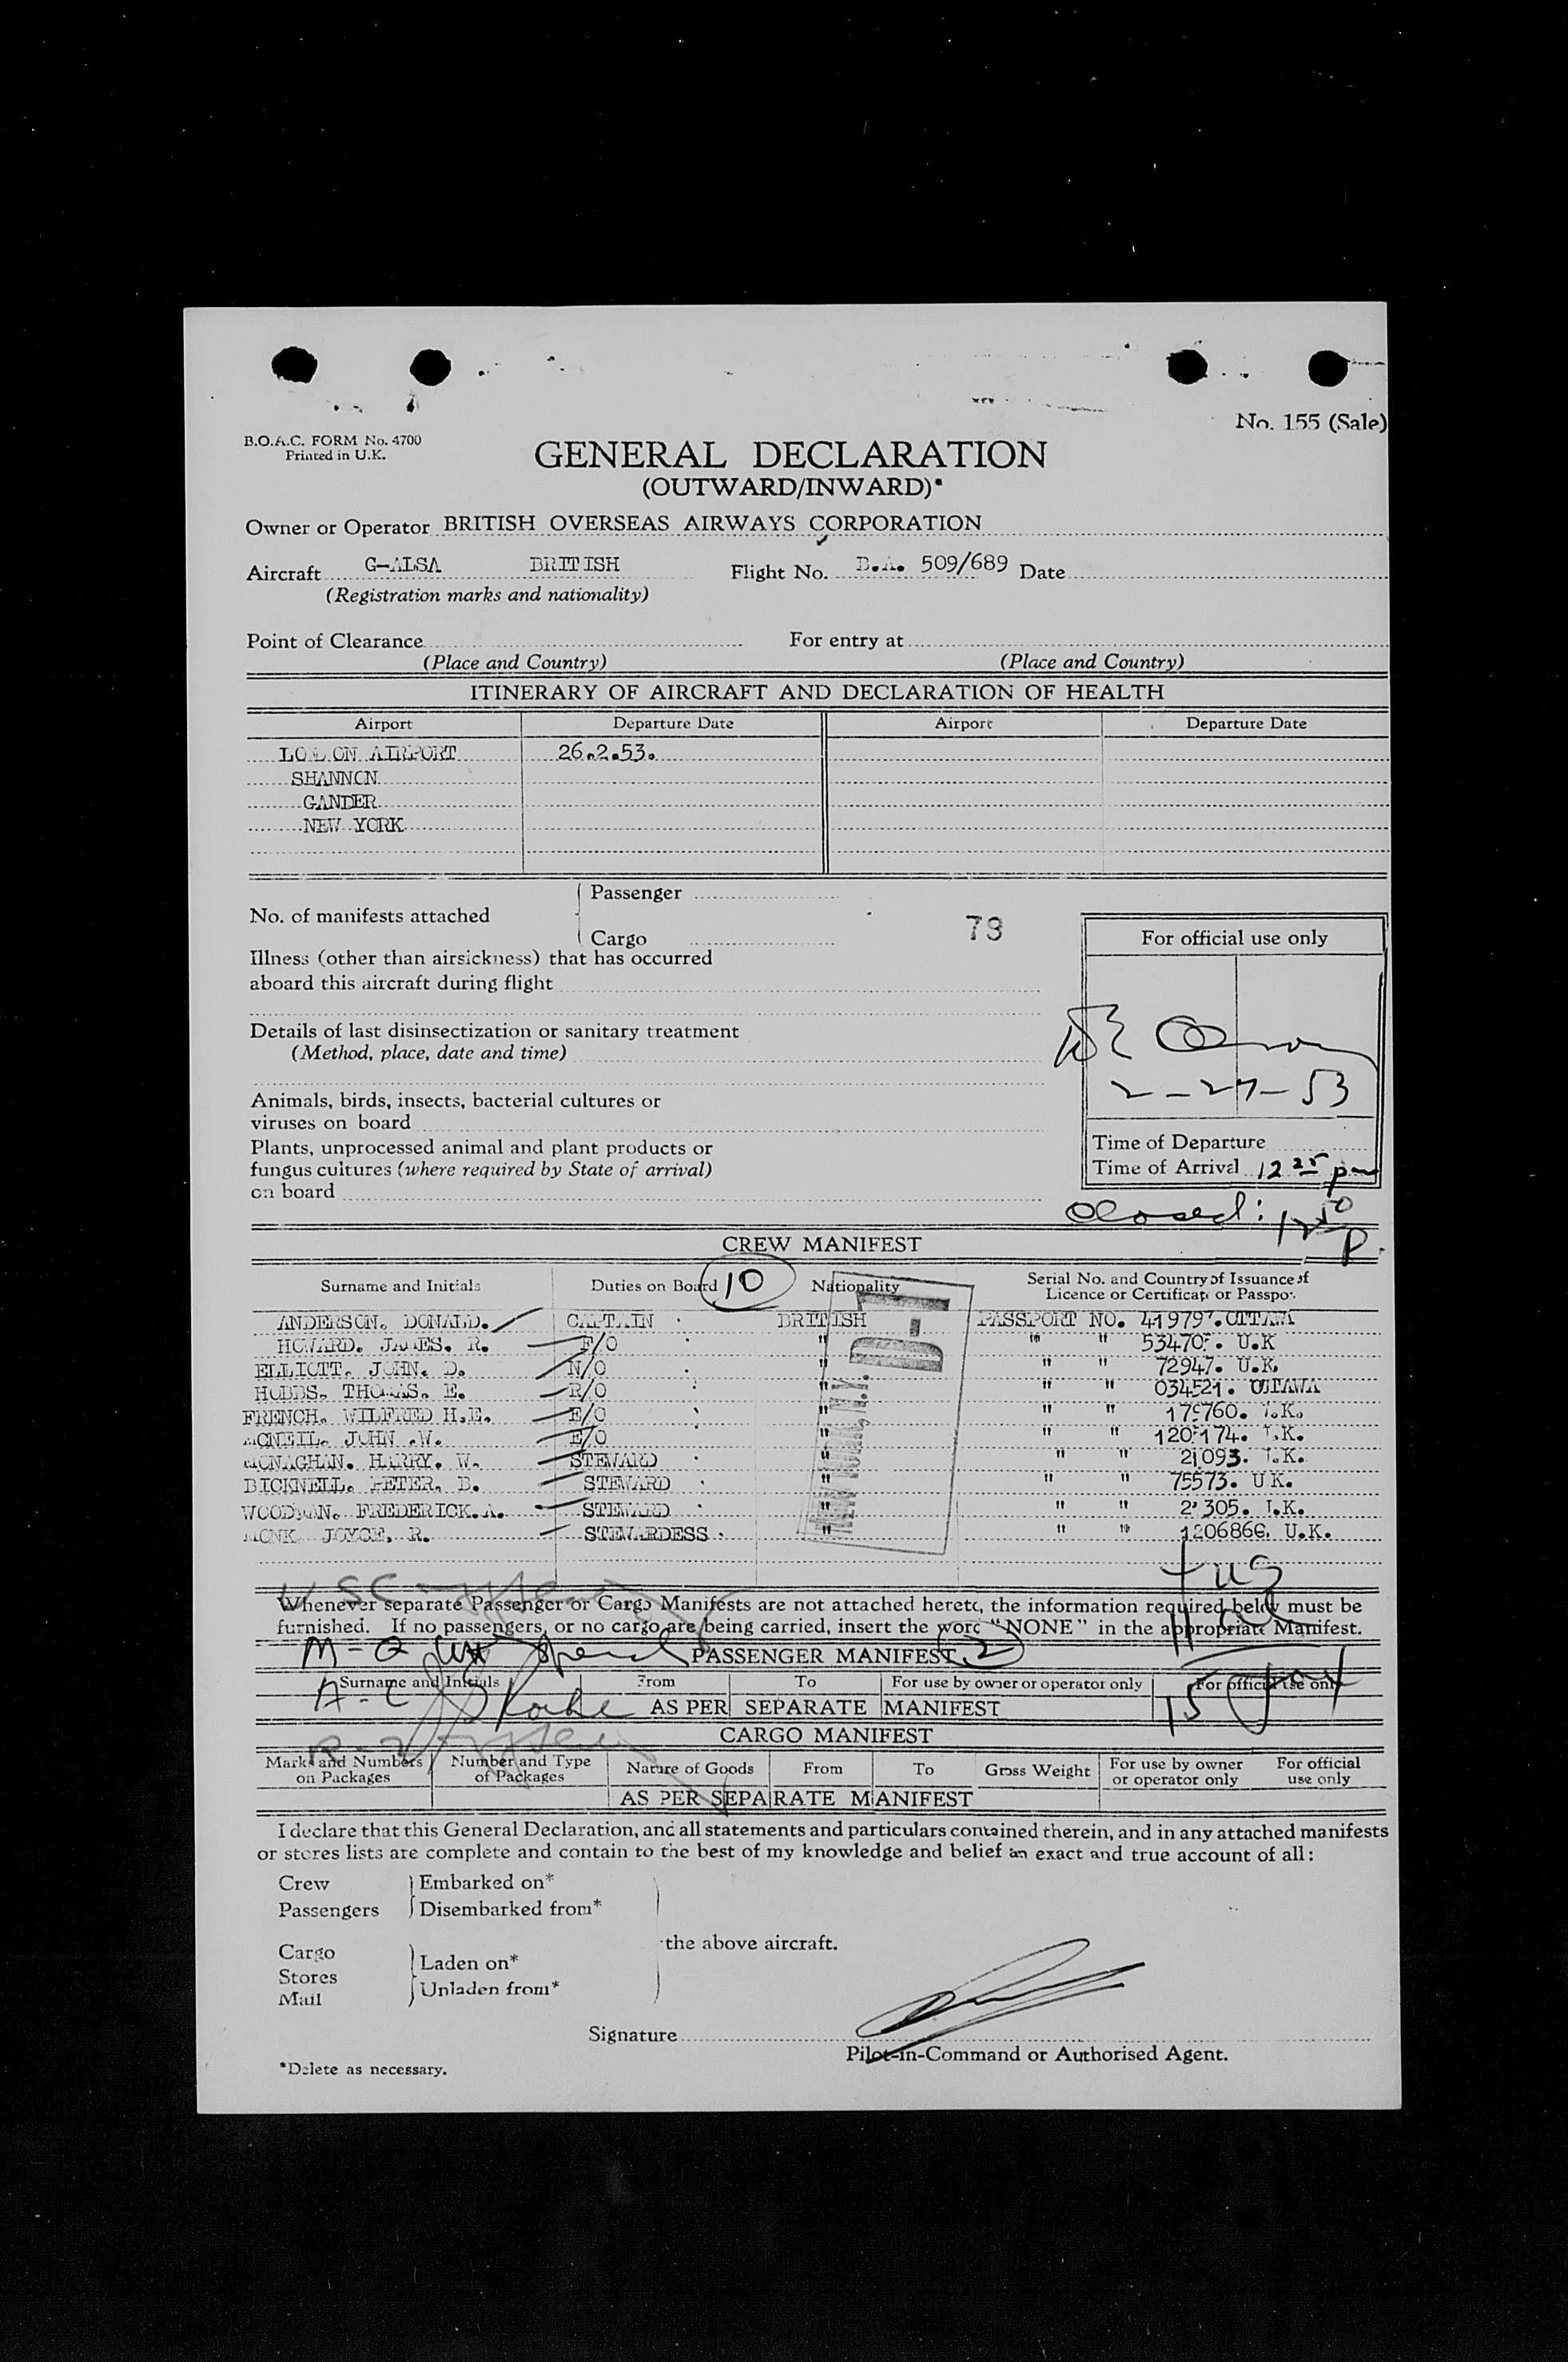 No. 155 (Sale)
B.O.A.C. FORM No. 4700
Printed in U.K.
GENERAL DECLARATION
(OUTWARD/INWARD)*
Owner or Operator BRITISH OVERSEAS AIRWAYS CORPORATION
Aircraft G-ALSA BRITISH Flight No. B.A. 509/689 Date
(Registration marks and nationality)
Point of Clearance For entry at
(Place and Country) (Place and Country)
ITINERARY OF AIRCRAFT AND DECLARATION OF HEALTH
Airport Departure Date Airport Departure Date
LONDON AIRPORT 26.2.53.
SHANNON
GANDER
NEW YORK
Passenger
No. of manifests attached
Cargo
73
For official use only
Illness (other than airsickness) that has occurred
aboard this aircraft during flight
Details of last disinsectization or sanitary treatment
(Method, place, date and time)
2-27-53
Animals, birds, insects, bacterial cultures or
viruses on board
Plants, unprocessed animal and plant products or
fungus cultures (where required by State of arrival)
on board
Time of Departure
Time of Arrival 12 25 pm
Closed: 12 50 P.
CREW MANIFEST
Surname and Initials Duties on Board 10 Nationality Serial No. and Country of Issuance of
Licence or Certificate or Passpo
ANDERSON. DONALD. CAPTAIN BRITISH PASSPORT NO. 41979 . OTTAWA
HOWARD. JAMES. R. F/O " " " 53470 . U.K
ELLIOTT. JOHN. D. N/O " " " 72947. U.K.
HOBBS. THOMAS. E. R/O " " " 034521. OTTAWA
FRENCH. WILFRED H.E. E/O " " " 179760. U.K.
MCNEIL. JOHN .W. E/O " " " 120174. U.K.
MONAGHAN. HARRY. W. STEWARD " " " 21093. U.K.
BICKNELL. PETER. D. STEWARD " " " 75573. U.K.
WOODMAN. FREDERICK.A. STEWARD " " " 2 305. U.K.
MONK JOYCE. R. STEWARDESS " " " 120686 . U.K.
NEW YORK, N.Y.
D-1
Whenever separate Passenger or Cargo Manifests are not attached hereto, the information required below must be
furnished. If no passengers or no cargo are being carried, insert the word "NONE" in the appropriate Manifest.
PASSENGER MANIFEST 2
Surname and Initials From To For use by owner or operator only For official use only
AS PER SEPARATE MANIFEST
CARGO MANIFEST
Marks and Numbers on Packages Number and Type of Packages Nature of Goods From To Gross Weight For use by owner or operator only For official use only
AS PER SEPARATE MANIFEST
I declare that this General Declaration, and all statements and particulars contained therein, and in any attached manifests
or stores lists are complete and contain to the best of my knowledge and belief an exact and true account of all:
Crew Embarked on*
Passengers Disembarked from*
the above aircraft.
Cargo Laden on*
Stores
Mail Unladen from*
Signature
Pilot-in-Command or Authorised Agent.
*Delete as necessary.